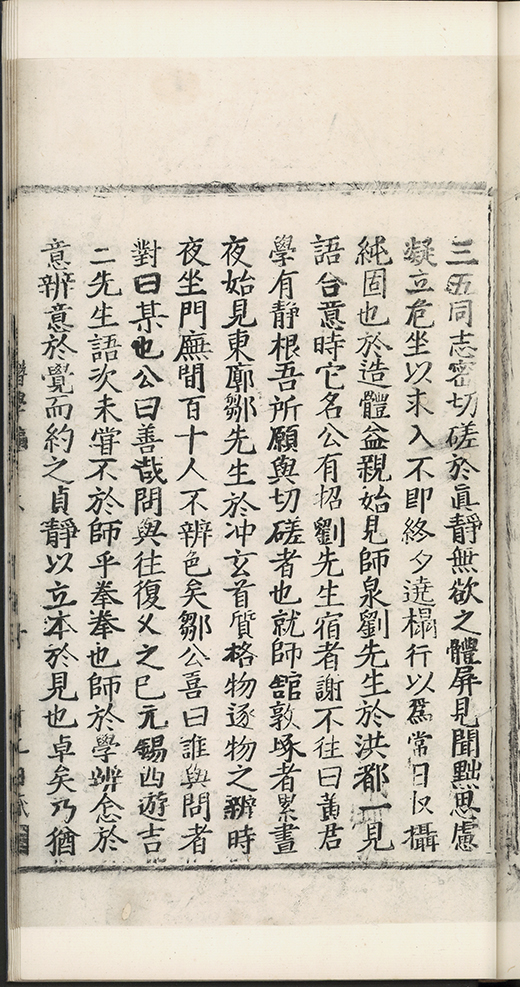 三五同志密切磋於眞靜無欲之體屏見聞黜思慮
凝立危坐以求入不即終夕遶榻行以爲常日收攝
純固也於造體益親始見師泉劉先生於洪都一見
語合意時它名公有招劉先生宿者謝不往曰黃君
學有靜根吾所願與切磋者也就師舘敦琢者累晝
夜始見東廓鄒先生於冲玄首質格物逐物之辨時
夜坐門廡間百十人不辨色矣鄒公喜曰誰與問者
對曰某也公曰善哉問與往復乂之巳元錫西遊吉
二先生語次未甞不於師乎拳拳也師於學辨念於
意辨意於覺而約之貞靜以立本於見也卓矣乃猶